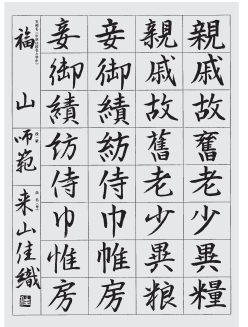 親戚故舊老少異糧
親戚故舊老少異粮
妾御績紡侍巾帷房
妾御績紡侍巾惟房
福山 師範 来山佳織